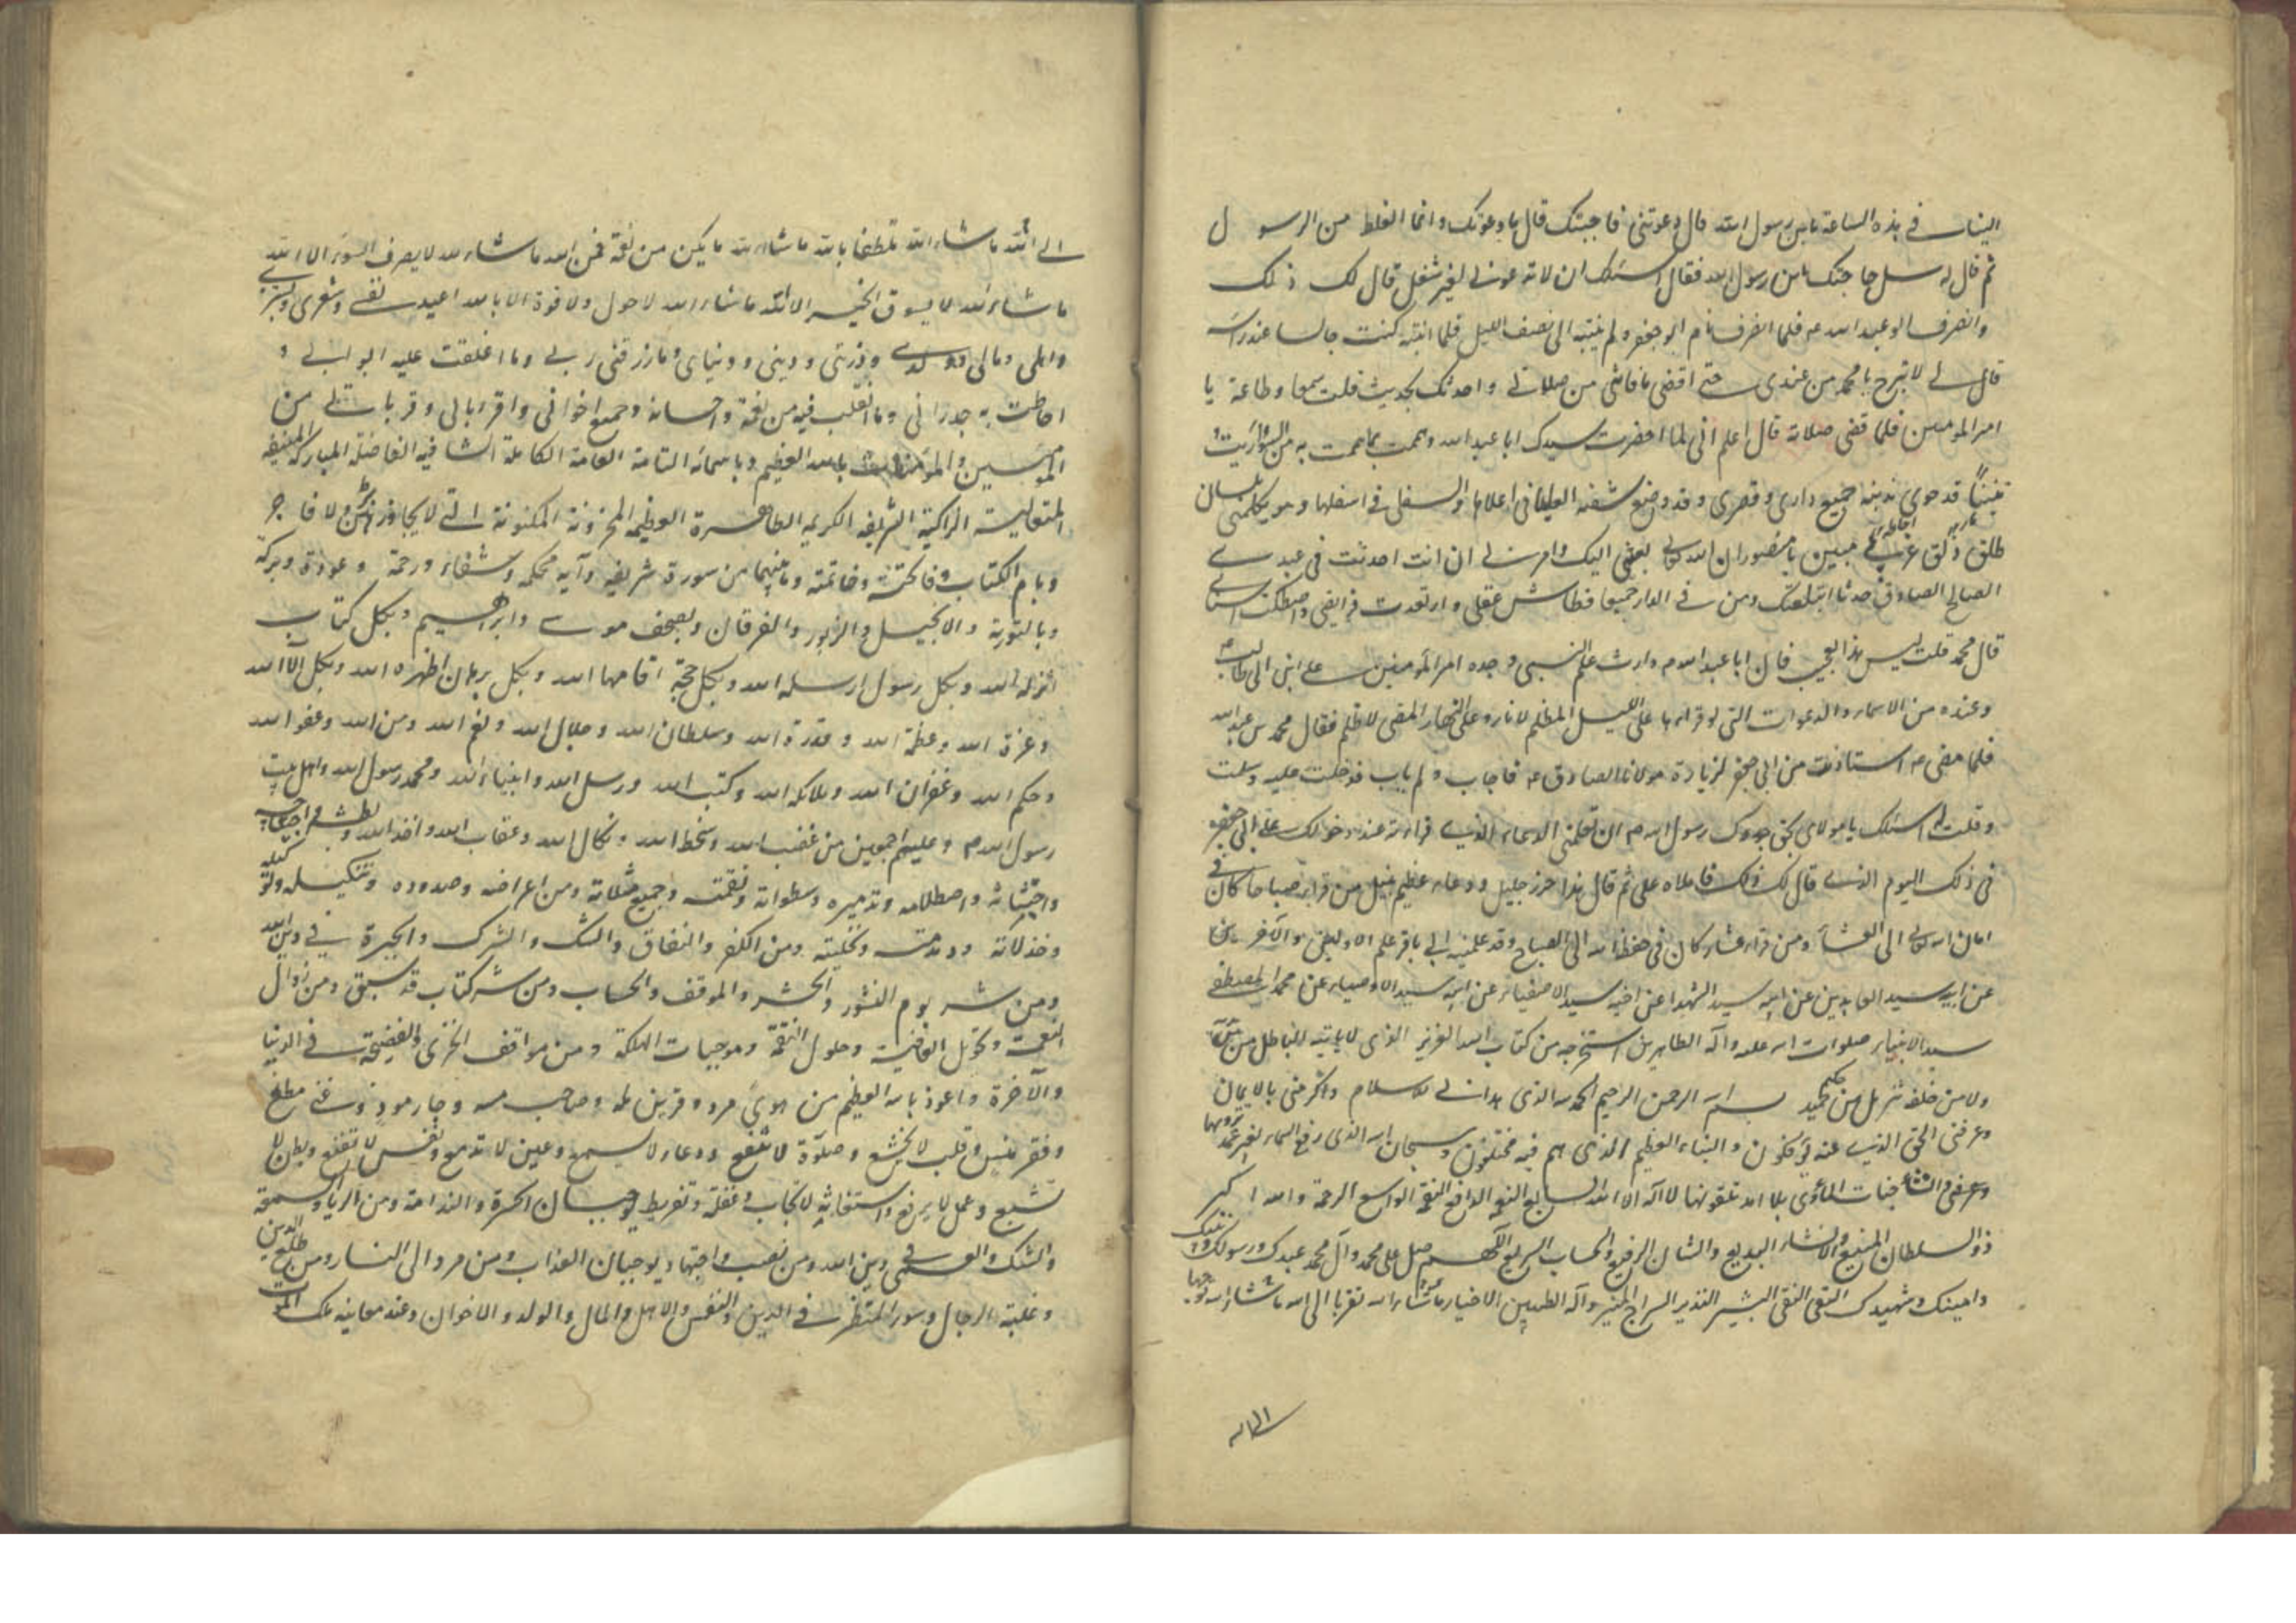 الینا فی هذه الساعة یابن رسول الله قال دعوتنی فاجبتک قال ما دعوتک وانما الغلط من الرسول
ثم قال له سل حاجتک یابن رسول الله فقال اسئلک ان لا تدعونی لغیر شغل قال لک ذلک
وانصرف ابو عبد الله ع فلما انصرف نام ابو جعفر ولم ینتبه الی نصف اللیل فلما انتبه کنت جالسا عند راسه
قال لی لا تبرح یا محمد من عندی حتی اقضی ما فاتنی من صلاتی واحدثک بحدیث قلت سمعا وطاعة یا
امیر المومنین فلما قضی صلاته قال اعلم انی لما احضرت سیدک ابا عبد الله وهممت بما هممت به من السوء رایت
تنینا قد حوی بذنبه جمیع داری وقصری وقد وضع شفته العلیا فی اعلاها والسفلی فی اسفلها وهو یکلمنی بلسان
طلق ذلق عربی مبین یا منصور ان الله تعالی بعثنی الیک وامرنی ان انت احدثت فی عبدی
الصالح الصادق حدثا ابتلعتک ومن فی الدار جمیعا فطاش عقلی وارتعدت فرایصی واصطکت اسنانی
قال محمد قلت لیس هذا بعجیب فان ابا عبد الله م وارث علم النبی وجده امیر المومنین علی ابن ابی طالب
وعنده من الاسماء والدعوات التی لو قراها علی اللیل المظلم لانار وعلی النهار المضی لاظلم فقال محمد بن عبد الله
فلما مضی ع استاذنت من ابی جعفر لزیارة مولانا الصادق ع فاجاب ولم یاب فدخلت علیه وسلمت
وقلت له اسئلک یا مولای بحق جدک رسول الله م ان تعلمنی الدعاء الذی قراته عند دخولک علی ابی جعفر
فی ذلک الیوم الذی قال لک ذلک فاملاه علی ثم قال هذا حرز جلیل ودعاء عظیم نبیل من قراه صباحا کان فی
امان الله تعالی الی العشاء ومن قراه عشاء کان فی حفظ الله الی الصباح وقد علمنیه ابی باقر علم الاولین والآخرین
عن ابیه سید العابدین عن ابیه سید الشهدا عن اخیه سید الاصفیاء عن ابیه سید الاوصیاء عن محمد المصطفی
سید الانبیاء صلوات الله علیه وآله الطاهرین استخرجه من کتاب الله العزیز الذی لا یاتیه الباطل من بین یدیه
ولا من خلفه تنزیل من حکیم حمید بسم الله الرحمن الرحیم الحمد لله الذی هدانی للاسلام واکرمنی بالایمان
وعرفنی الحق الذی عنه یؤفکون والنباء العظیم الذی هم فیه مختلفون وسبحان الله الذی رفع السماء بغیر عمد ترونها
جنات المأوی بلا امد تلقونها لا اله الا الله السابغ النعم الدافع النقم الواسع الرحمة والله اکبر
ذو السلطان المنیع والانشاء البدیع والشان الرفیع والحساب السریع اللهم صل علی محمد وآل محمد عبدک ورسولک ونبیک
وامینک وشهیدک التقی النقی البشیر النذیر السراج المنیر وآله الطیبین الاخیار ما شاء الله تقربا الی الله ما شاء الله توجها
الی الله
الی الله ما شاء الله تلطفا بالله ما شاء الله ما یکن من نعمة فمن الله ما شاء الله لا یصرف السوء الا الله
ما شاء الله لا یسوق الخیر الا الله ما شاء الله لا حول ولا قوة الا بالله اعید نفسی وشعری وبشری
واهلی ومالی وولدی وذریتی ودینی ودنیای وما رزقنی ربی وما اغلقت علیه ابوابی و
احاطت به جدرانی وما اتقلب فیه من نعمة واحسانه وجمیع اخوانی واقربائی وقراباتی من
المؤمنین والمؤمنات بالله العظیم وباسمائه التامة العامة الکاملة الشافیة الفاضلة المبارکة المنیفة
المتعالیة الزاکیة الشریفة الکریمة الطاهرة العظیمة المخزونة المکنونة التی لا یجاوزهن بر ولا فاجر
وبام الکتاب وفاتحته وخاتمته وما بینهما من سورة شریفة وآیة محکمة وشفاء ورحمة وعوذة وبرکة
وبالتوریة والانجیل والزبور والفرقان وبصحف موسی وابراهیم وبکل کتاب
انزله الله وبکل رسول ارسله الله وبکل حجة اقامها الله وبکل برهان اظهره الله وبکل آلاء الله
وعزة الله وعظمة الله وقدرة الله وسلطان الله وجلال الله ومنع الله ومن الله وعفو الله
وحکم الله وغفران الله وملائکة الله وکتب الله ورسل الله وانبیاء الله ومحمد رسول الله واهل بیت
رسول الله م وعلیهم اجمعین من غضب الله وسخط الله ونکال الله وعقاب الله واخذ الله وبطشه واجتیاحه
واجتثاثه واصطلامه وتدمیره وسطواته ونقمته وجمیع مثلاته ومن اعراضه وصدوده وتنکیله وتوکیله
وخذلانه ودمدمته وتخلیته ومن الکفر والنفاق والشک والشرک والحیرة فی دین الله
ومن شر یوم النشور والحشر والموقف والحساب ومن شر کتاب قد سبق ومن زوال
النعمة وتحویل العافیة وحلول النقمة وموجبات الهلکة ومن مواقف الخزی والفضیحة فی الدنیا
والآخرة واعوذ بالله العظیم من هوی مرد وقرین مله وصاحب مسه وجار موذ وغنی مطغ
وفقر منس وقلب لا یخشع وصلوة لا تنفع ودعاء لا یسمع وعین لا تدمع ونفس لا تقنع وبطن لا
تشبع وعمل لا یرفع واستغاثة لا تجاب وغفلة وتفریط یوجبان الحسرة والندامة ومن الریاء والسمعة
والشک والعمی فی دین الله ومن نصب واجتهاد یوجبان العذاب ومن مرد الی النار ومن ضلع الدین
وغلبة الرجال وسوء المنظر فی الدین والنفس والاهل والمال والولد والاخوان وعند معاینة ملک الموت